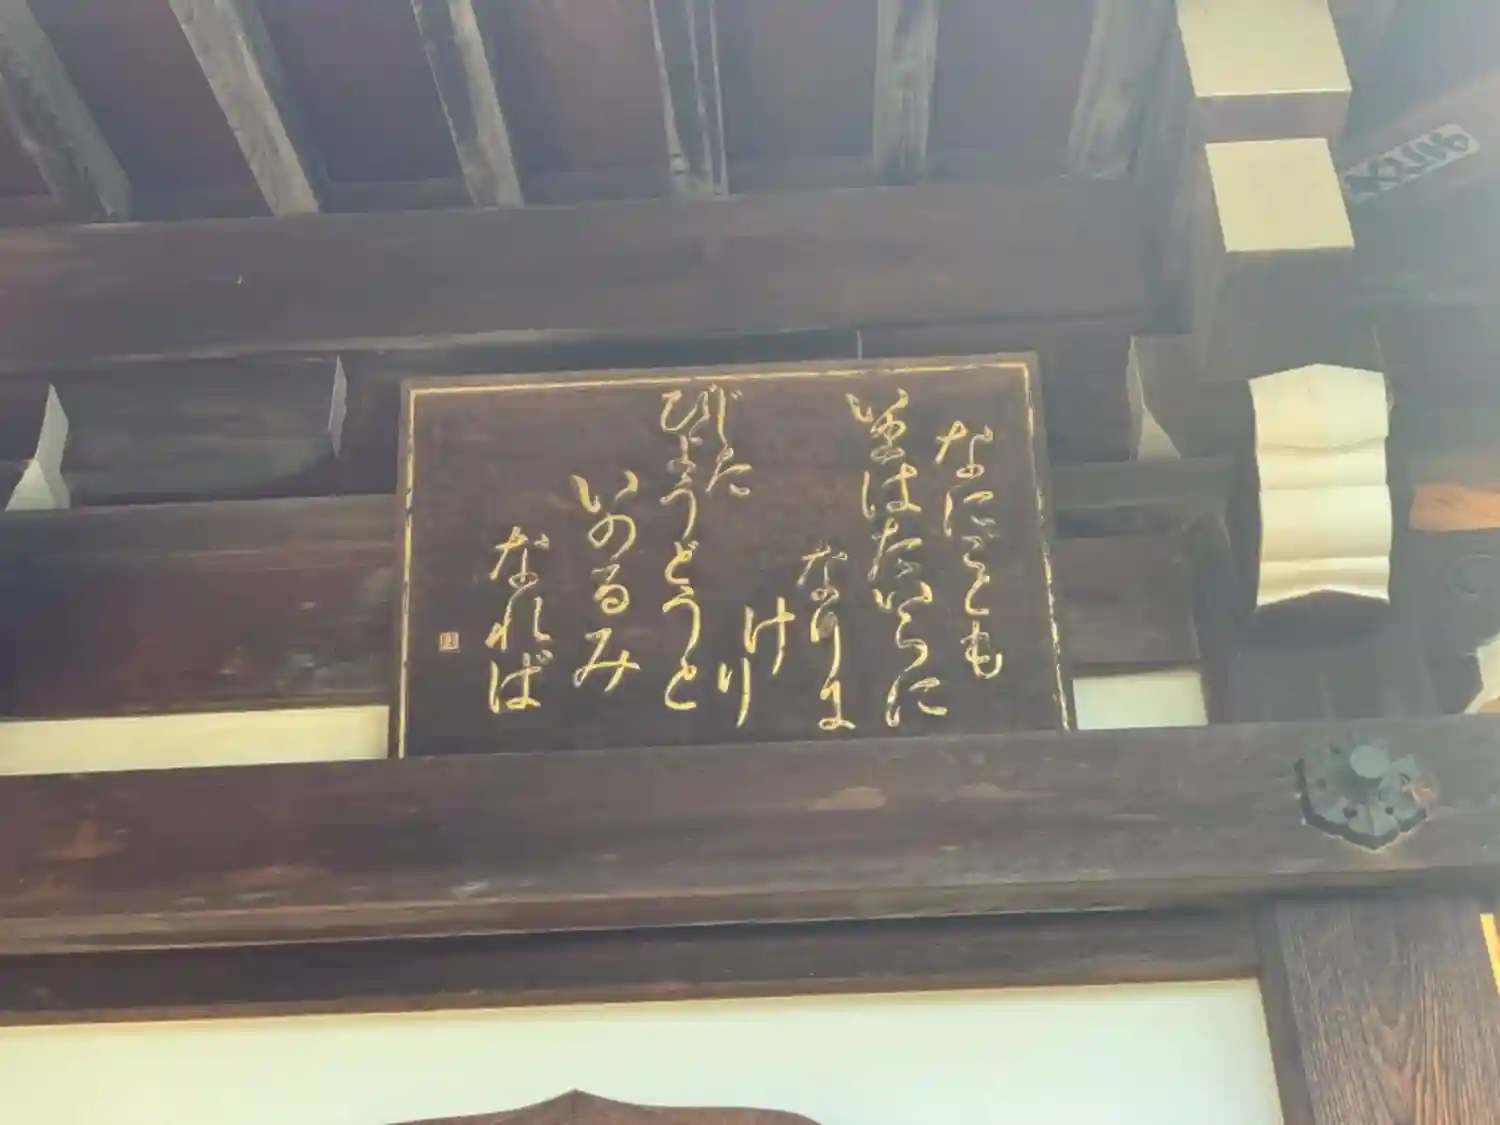 なにごとも
いまはたいらに
なりに
けり
じた
びょうどうと
いのるみ
なれば